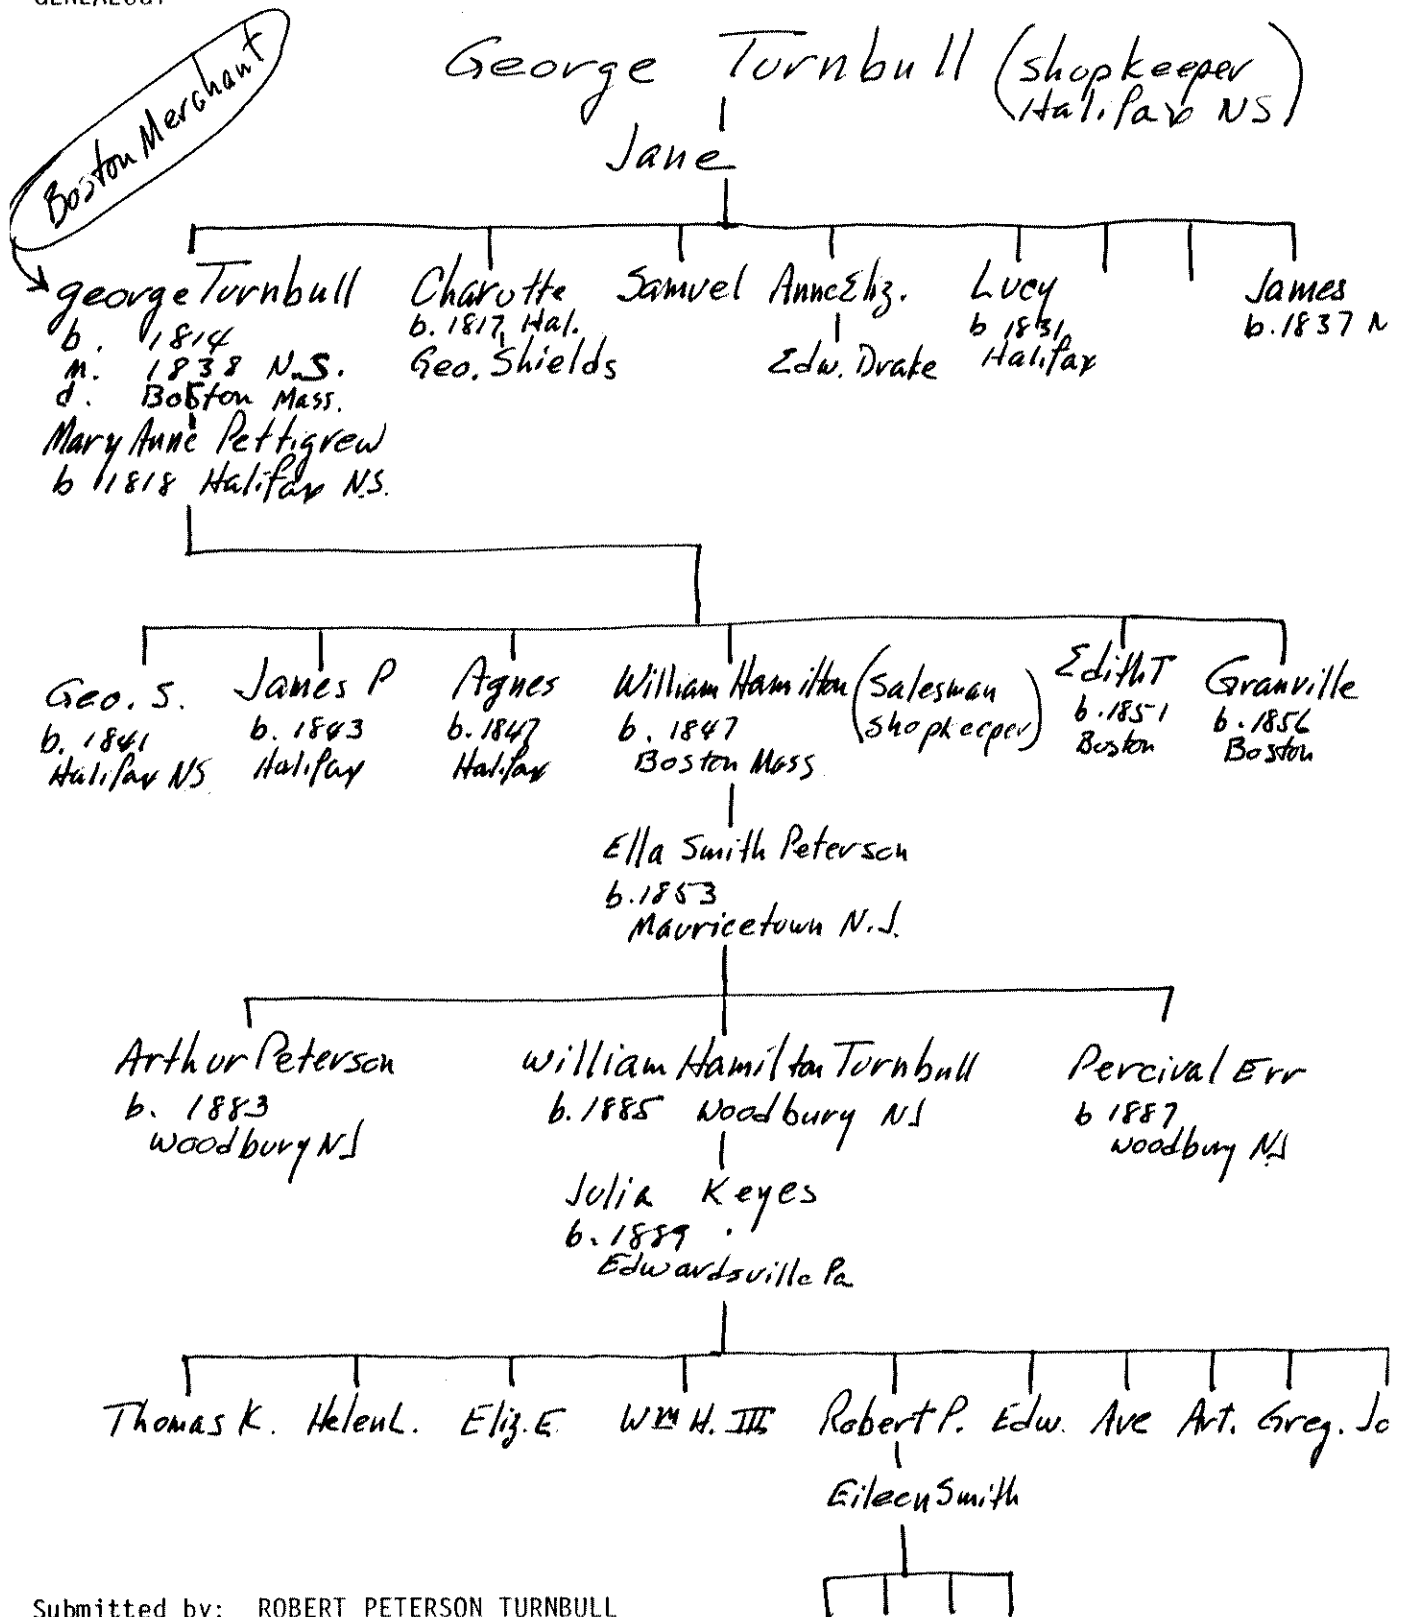 GENEALOGY
George Turnbull (shopkeeper
Halifax NS)
Boston Merchant
Jane
george Turnbull
b. 1814
m. 1838 N.S.
d. Boston Mass.
Mary Anne Pettigrew
b 1818 Halifax N.S.
Charotte
b. 1817 Hal.
Geo. Shields
Samuel
Anne Eliz.
Edw. Drake
Lucy
b 1831
Halifax
James
b. 1837 N
Geo. S.
b. 1841
Halifax NS
James P
b. 1843
Halifax
Agnes
b. 1847
Halifax
William Hamilton (Salesman
shopkeeper)
b. 1847
Boston Mass
Edith T
b. 1851
Boston
Granville
b. 1856
Boston
Ella Smith Peterson
b. 1853
Mauricetown N.J.
Arthur Peterson
b. 1883
Woodbury NJ
William Hamilton Turnbull
b. 1885 Woodbury NJ
Percival Err
b 1887
Woodbury NJ
Julia Keyes
b. 1889
Edwardsville Pa
Thomas K. Helen L. Eliz. E. Wm H. III Robert P. Edw. Ave Art. Greg. Jo
Eileen Smith
Submitted by: ROBERT PETERSON TURNBULL